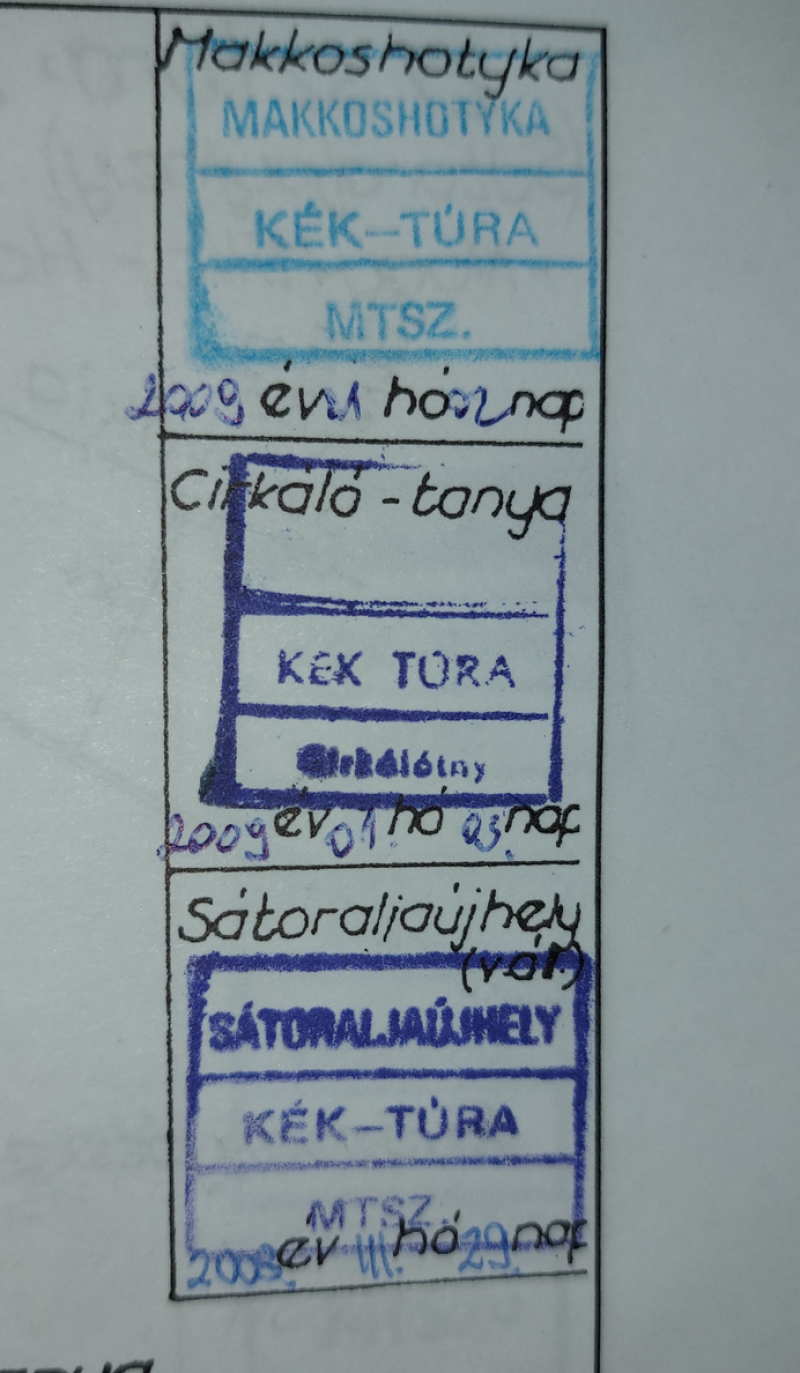 Makkoshotyka
MAKKOSHOTYKA
KÉK-TÚRA
MTSZ.
2009 év hó nap
Cirkáló-tanya
KÉK TÚRA
Cirkálótny
2009 év 01. hó 03. nap
Sátoraljaújhely
(vár.)
SÁTORALJAÚJHELY
KÉK-TÚRA
MTSZ.
2008. év III. hó 29. nap